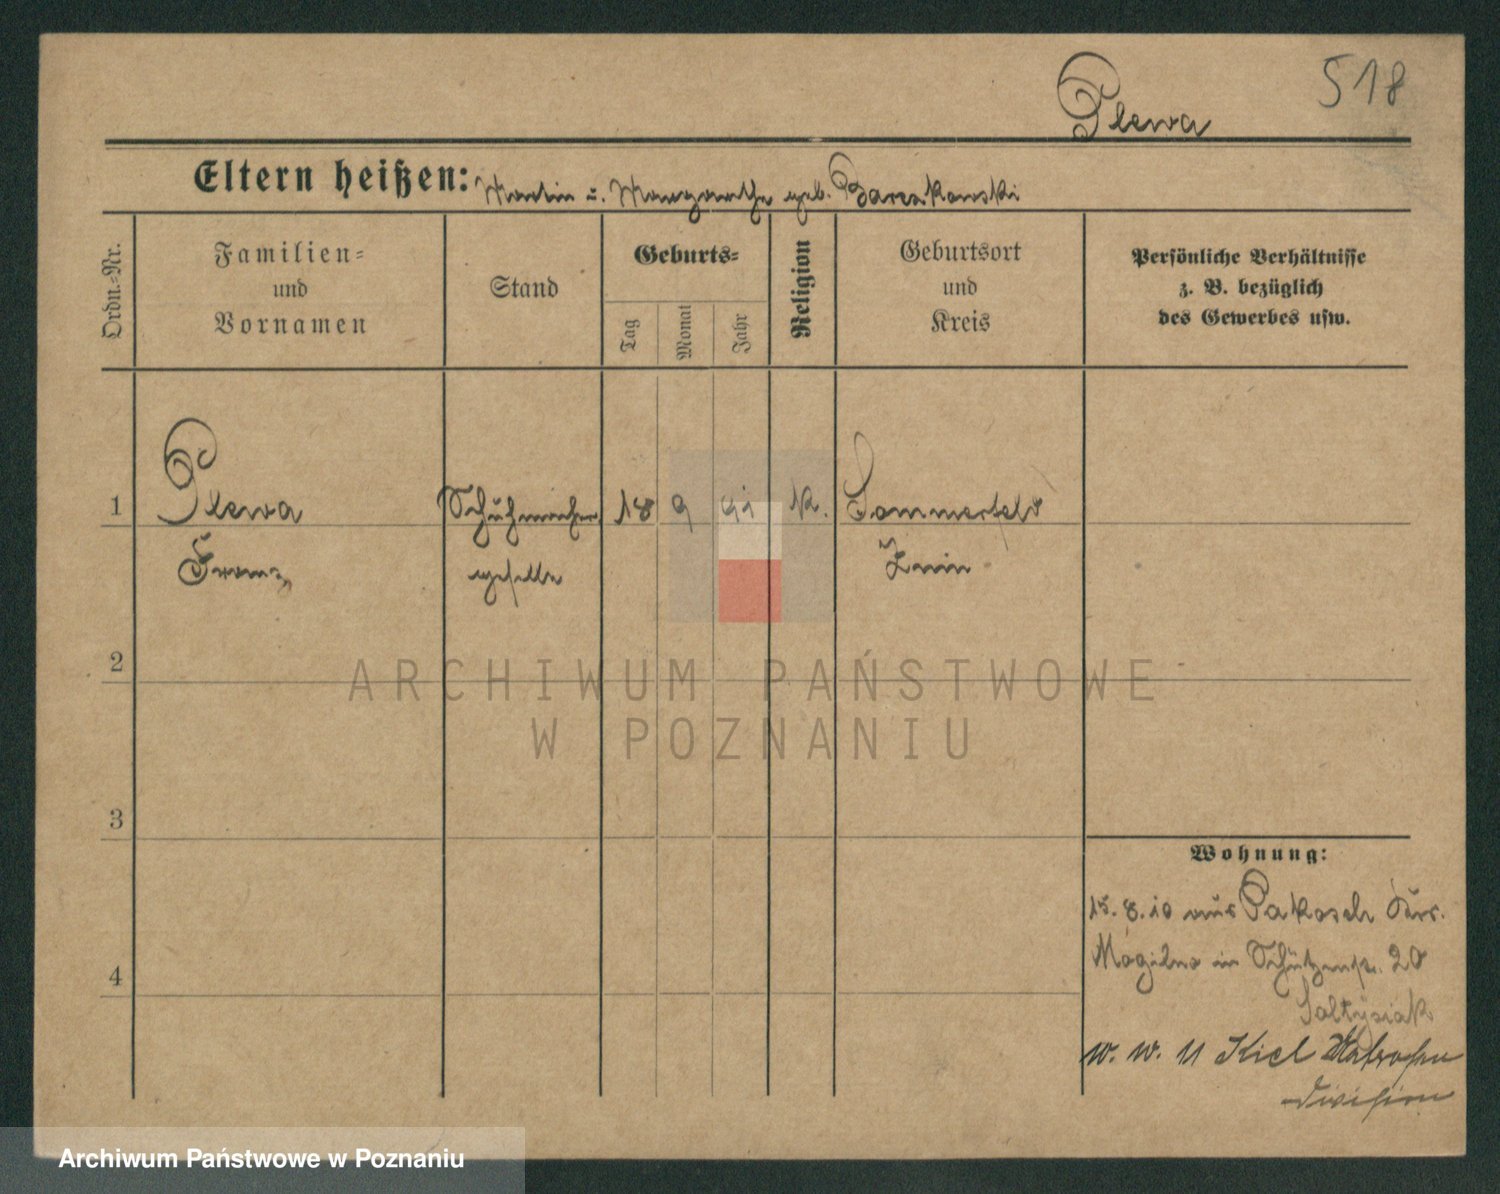 518
Plewa
Eltern heißen: Martin u. Margarethe geb. Barczikowski
Ordn.-Nr.
Familien-
und
Vornamen
Stand
Geburts-
Tag
Monat
Jahr
Religion
Geburtsort
und
Kreis
Persönliche Verhältnisse
z. B. bezüglich
des Gewerbes usw.
1 Plewa Schuhmacher 18 9 91 K. Sommerfeld
Franz geselle Znin
2
ARCHIWUM PAŃSTWOWE
W POZNANIU
3
4
Wohnung:
15.8.10 aus Pakosch Krs.
Mogilno in Schützenstr. 20
Soltysiak
11 Kiel Matrosen
division
Archiwum Państwowe w Poznaniu